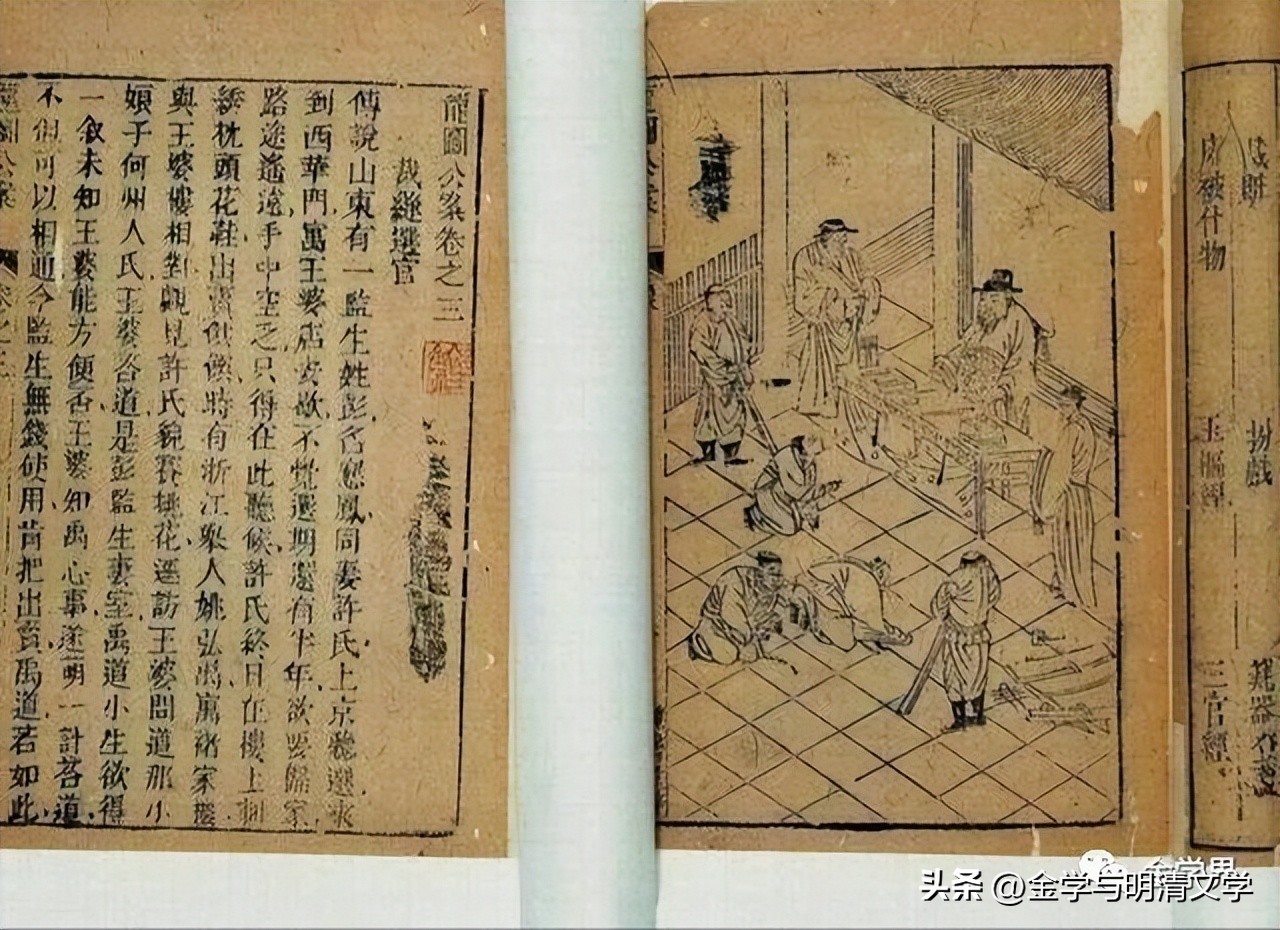 扮戲
玉樞經
三官經
龍圖公案卷之三
裁縫選官
傳說山東有一監生姓彭名應鳳同妻許氏上京聽選來
到西華門寓王婆店安歇不覺選期還有半年欲要歸家
路途遙遠手中空乏只得在此聽候許氏終日在樓上刺
綉枕頭花鞋出賣時有浙江舉人姚弘禹寓褚家樓
與王婆樓相對觀見許氏貌賽桃花逕訪王婆問道那小
娘子何州人氏王婆答道是彭監生妻室禹道小生欲得
一叙未知王婆能方便否王婆知禹心事遂萌一計答道
不但可以相通今監生無錢使用肯把出賣禹道若如此
金学界
头条 @金学与明清文学